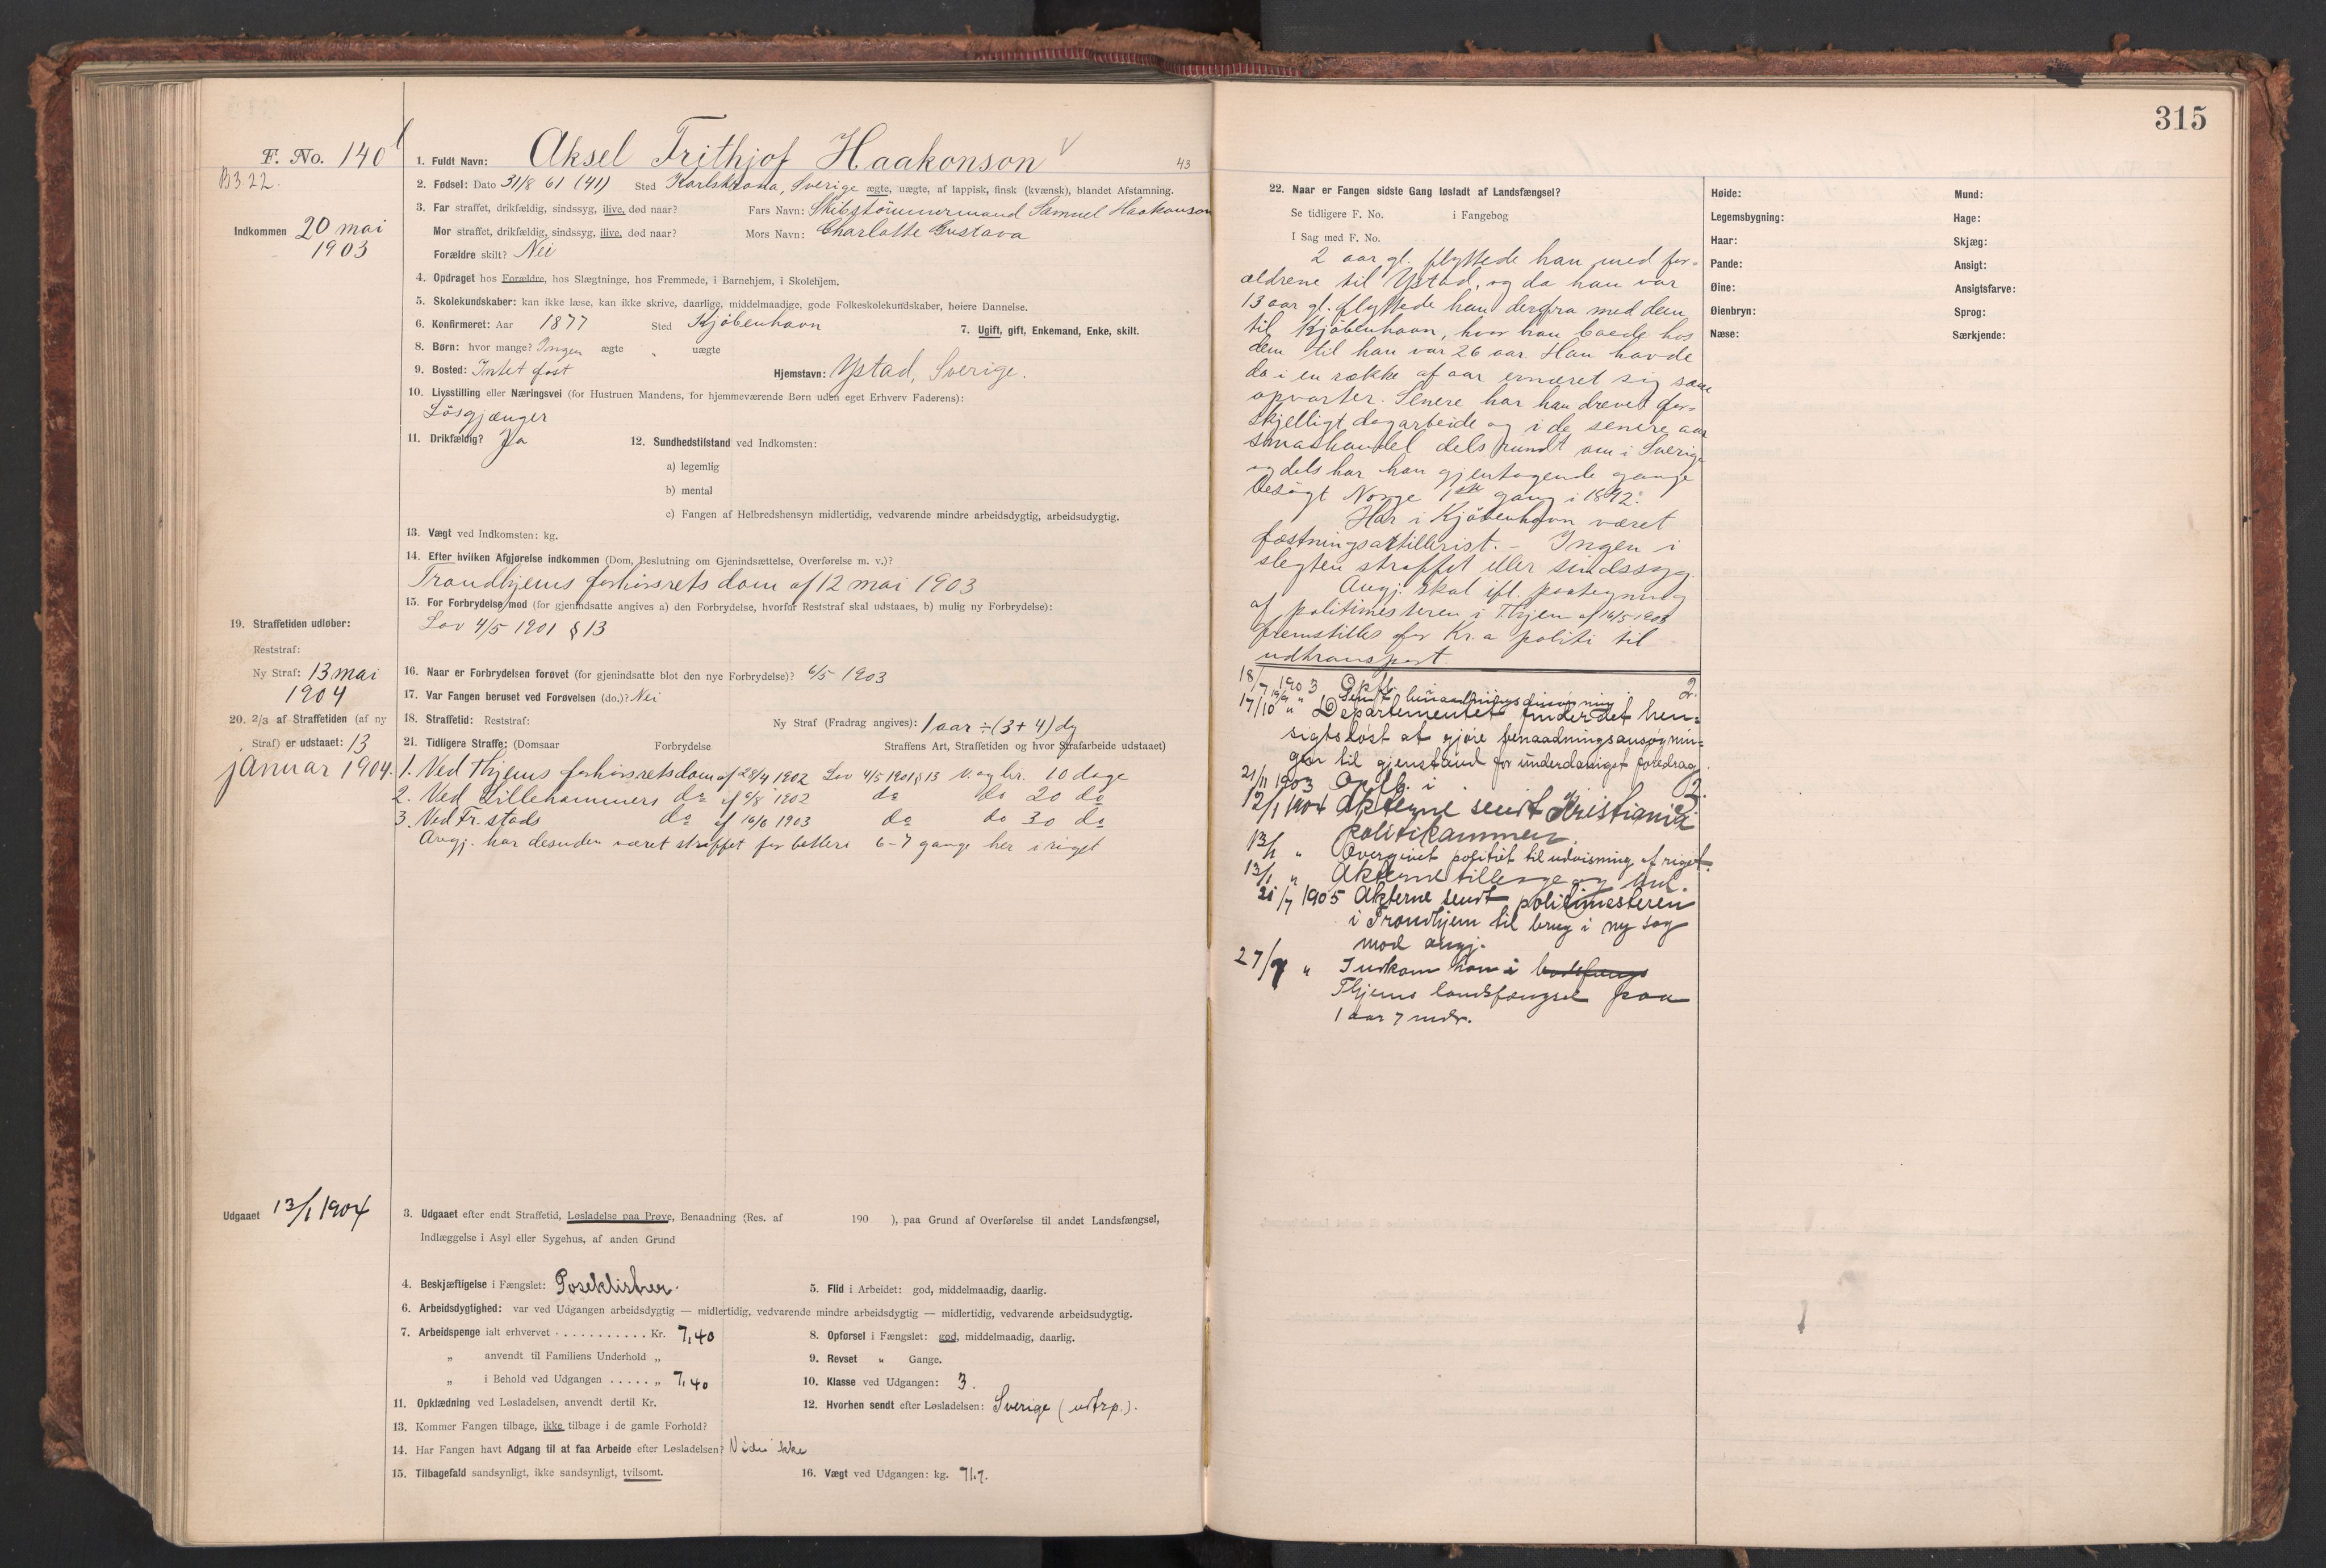 315
F. No. 140
B 3.22.
Indkommen 20 mai
1903
1. Fuldt Navn: Aksel Frithjof Haakonson
43
2. Fødsel: Dato 31/8 61 (41) Sted Karlskrona, Sverige ægte, uægte, af lappisk, finsk (kvænsk), blandet Afstamning.
3. Far straffet, drikfældig, sindssyg, ilive, død naar? Fars Navn: Skibstömmermand Samuel Haakonson
Mor straffet, drikfældig, sindssyg, ilive, død naar? Mors Navn: Charlotte Gustava
Forældre skilt? Nei
4. Opdraget hos Forældre, hos Slægtninge, hos Fremmede, i Barnehjem, i Skolehjem.
5. Skolekundskaber: kan ikke læse, kan ikke skrive, daarlige, middelmaadige, gode Folkeskolekundskaber, høiere Dannelse.
6. Konfirmeret: Aar 1877 Sted Kjöbenhavn 7. Ugift, gift, Enkemand, Enke, skilt.
8. Børn: hvor mange? Ingen ægte " uægte
9. Bosted: Intet fast Hjemstavn: Ystad, Sverige.
10. Livsstilling eller Næringsvei (for Hustruen Mandens, for hjemmeværende Børn uden eget Erhverv Faderens):
Lösgjænger
11. Drikfældig? Ja 12. Sundhedstilstand ved Indkomsten:
a) legemlig
b) mental
c) Fangen af Helbredshensyn midlertidig, vedvarende mindre arbeidsdygtig, arbeidsudygtig.
13. Vægt ved Indkomsten: kg.
14. Efter hvilken Afgjørelse indkommen (Dom, Beslutning om Gjenindsættelse, Overførelse m. v.)?
Trondhjems forhörsrets dom af 12 mai 1903
15. For Forbrydelse mod (for gjenindsatte angives a) den Forbrydelse, hvorfor Reststraf skal udstaaes, b) mulig ny Forbrydelse):
Lov 4/5 1901 § 13
19. Straffetiden udløber:
Reststraf:
Ny Straf: 13 mai
1904
16. Naar er Forbrydelsen forøvet (for gjenindsatte blot den nye Forbrydelse)? 6/5 1903
17. Var Fangen beruset ved Forøvelsen (do.)? Nei
20. 2/3 af Straffetiden (af ny
Straf) er udstaaet: 13
januar 1904.
18. Straffetid: Reststraf: Ny Straf (Fradrag angives): 1 aar ÷ (3 + 4) dg
21. Tidligere Straffe: (Domsaar Forbrydelse Straffens Art, Straffetiden og hvor Strafarbeide udstaaet)
1. Ved Thjems forhörsretsdom af 28/4 1902 Lov 4/5 1901 § 13 V. og br. 10 dage
2. Ved Lillehammers do af 6/8 1902 do do 20 do
3. Ved Fr.stads do af 16/6 1903 do do 30 do
Angj. har desuden været straffet for betleri 6-7 gange her i riget
Udgaaet 13/1 1904
3. Udgaaet efter endt Straffetid, Løsladelse paa Prøve, Benaadning (Res. af 190 ), paa Grund af Overførelse til andet Landsfængsel,
Indlæggelse i Asyl eller Sygehus, af anden Grund
4. Beskjæftigelse i Fængslet: Poseklistrer. 5. Flid i Arbeidet: god, middelmaadig, daarlig.
6. Arbeidsdygtighed: var ved Udgangen arbeidsdygtig — midlertidig, vedvarende mindre arbeidsdygtig — midlertidig, vedvarende arbeidsudygtig.
7. Arbeidspenge ialt erhvervet . . . . . . . . . . . Kr. 7,40 8. Opførsel i Fængslet: god, middelmaadig, daarlig.
„ anvendt til Familiens Underhold „ 9. Revset " Gange.
„ i Behold ved Udgangen . . . . . „ 7,40 10. Klasse ved Udgangen: 3.
11. Opklædning ved Løsladelsen, anvendt dertil Kr. 12. Hvorhen sendt efter Løsladelsen: Sverige (udtrp.).
13. Kommer Fangen tilbage, ikke tilbage i de gamle Forhold?
14. Har Fangen havt Adgang til at faa Arbeide efter Løsladelsen? Vides ikke
15. Tilbagefald sandsynligt, ikke sandsynligt, tvilsomt. 16. Vægt ved Udgangen: kg. 71.7.
22. Naar er Fangen sidste Gang løsladt af Landsfængsel?
Se tidligere F. No. i Fangebog
I Sag med F. No.
2 aar gl. flyttede han med for=
ældrene til Ystad, og da han var
13 aar gl. flyttede han derfra med dem
til Kjöbenhavn, hvor han boede hos
dem til han var 26 aar Han havde
da i en række af aar ernæret sig som
opvarter. Senere har han drevet for=
skjelligt dagarbeide og i de senere aar
smaahandel dels rundt om i Sverige
og dels har han gjentagende gange
besögt Norge 1ste gang i 1892.
Har i Kjöbenhavn været
fæstningsartillerist. – Ingen i
slegten straffet eller sindssyg.
Angj. skal ifl. paategning
af politimesteren i Thjem af 16/5 1903
fremstilles for Kr.a politi til
udtransport.
18/7 1903 Opfl. 2.
Sendt benaadningsansögning
17/10 " Departementet finder det hen=
sigtslöst at gjöre benaadningsansögnin=
gen til gjenstand for underdanigst foredrag.
21/11 1903 Opfl. i 3.
12/1 1904 Akterne sendt Kristiania
politikammer.
13/1 " Overgivet politiet til udvisning af riget.
13/1 " Akterne tilbage og
21/7 1905 Akterne sendt politimesteren
i Trondhjem til brug i ny sag
mod angj.
27/7 " Indkom han i bodsfængs
Thjems landsfængsel paa
1 aar 7 mdr.
Høide: Mund:
Legemsbygning: Hage:
Haar: Skjæg:
Pande: Ansigt:
Øine: Ansigtsfarve:
Øienbryn: Sprog:
Næse: Særkjende: